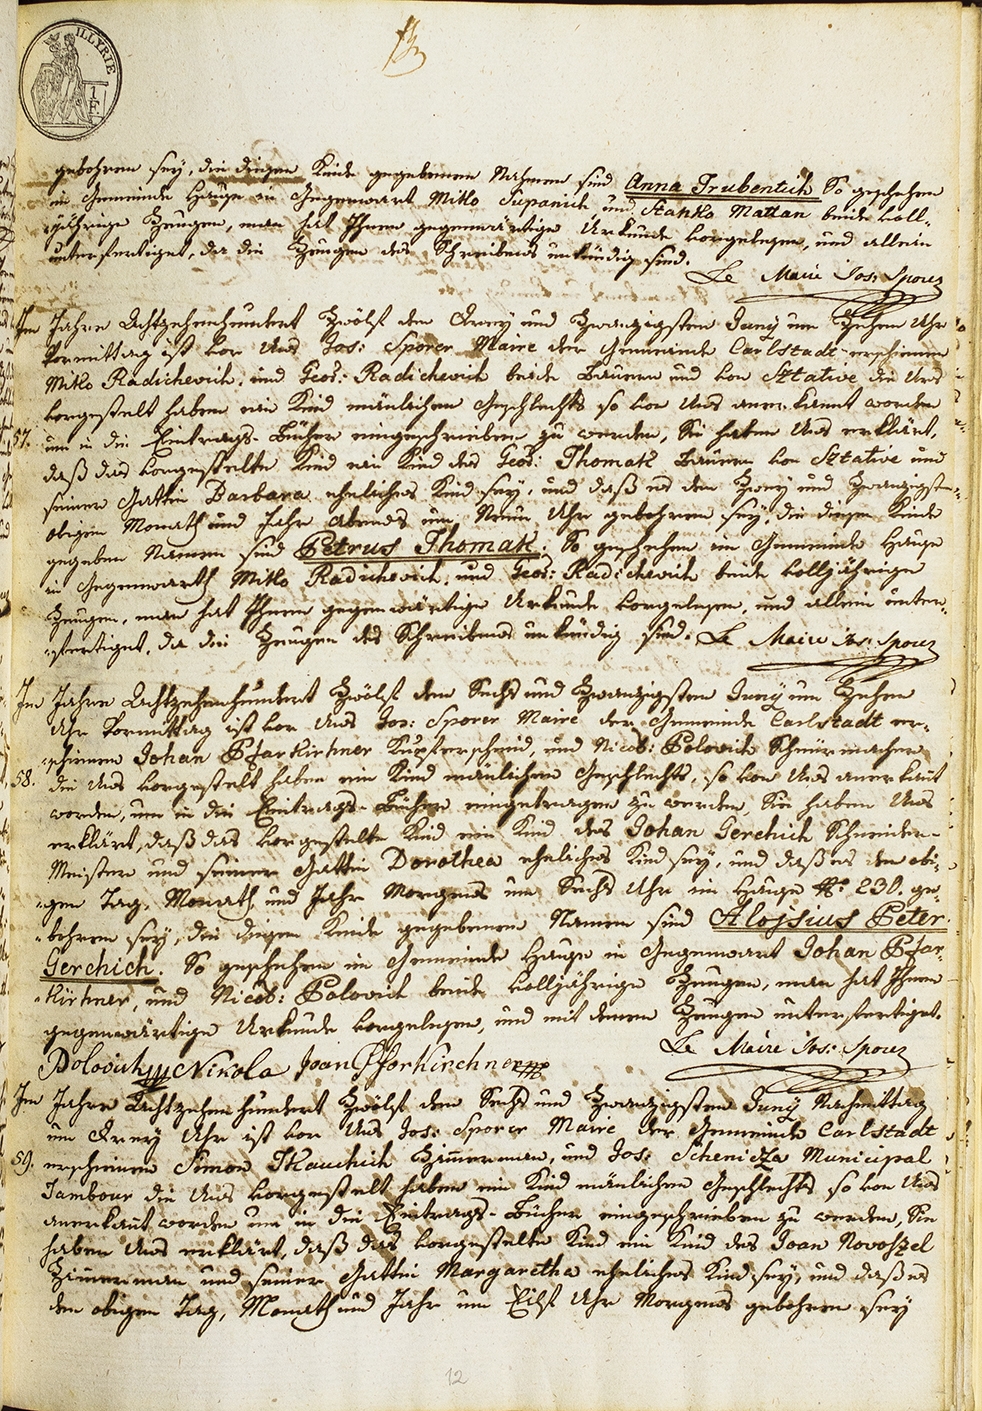 ILLYRIE
1 F.
gebohren sey, die diesem Kinde gegebenen Nahmen sind Anna Trubentich So geschehen
im Gemeinde Hause in Gegenwart Miko Supanich und Stanko Mattan beide voll-
-jährige Zeugen, man hat Ihnen gegenwärtige Urkunde vorgelesen, und allein
unterfertiget, da die Zeugen des Schreibens unkündig sind.
Le Maire Jos: Sporer
Im Jahre Achtzehenhundert Zwölf den Drey und Zwanzigsten Juny um Zehen Uhr
Vormittag ist vor Uns Jos: Sporer Maire der Gemeinde Carlstadt erschienen
Miko Radichevich, und Geor: Radichevich beide Bauern und von Sztative die Uns
vorgestelt haben ein Kind mänlichen Geschlechts so von Uns anerkannt worden
57. um in die Eintrags-Bücher eingeschrieben zu werden, Sie haben Uns erklärt,
daß das vorgestelte Kind ein Kind des Geor: Thomak Bauern von Sztative und
seiner Gattin Barbara eheliches Kind sey, und daß es den Zwey und Zwanzigsten
obigen Monath und Jahr Abends um Neun Uhr gebohren sey, die diesem Kinde
gegeben Namen sind Petrus Thomak. So geschehen im Gemeinde Hause
in Gegenwarth Miko Radichevich, und Geor: Radichevich beide volljährige
Zeugen, man hat Ihnen gegenwärtige Urkunde vorgelesen, und allein unter-
-fertiget, da die Zeugen des Schreibens unkündig sind. Le Maire Jos: Sporer
Im Jahre Achtzehenhundert Zwölf den Sechs und Zwanzigsten Juny um Zehen
Uhr Vormittag ist vor Uns Jos: Sporer Maire der Gemeinde Carlstadt er-
-schienen Johan Pfarkirchner Kupferschmid, und Nicol: Polovich Schnürmacher
58. die Uns vorgestelt haben ein Kind mänlichen Geschlechts, so von Uns anerkant
worden, um in die Eintrags-Bücher eingetragen zu werden, Sie haben Uns
erklärt, daß das vorgestelte Kind ein Kind des Johan Gerchich Schneider-
Meister und seiner Gattin Dorothea eheliches Kind sey, und daß es den obi-
-gen Tag, Monath und Jahr Morgens um Sechs Uhr im Hause No. 230. ge-
-bohren sey, die diesem Kinde gegebenen Namen sind Alojsius Peter
Gerchich. So geschehen im Gemeinde Hause in Gegenwart Johan Pfar-
-kirhner, und Nicol: Polovich beide volljährige Zeugen, man hat Ihnen
gegenwärtige Urkunde vorgelesen, und mit denen Zeugen unterfertiget.
Le Maire Jos: Sporer
Polovich Nikola Joan Pforkirchner
Im Jahre Achtzehen hundert Zwölf den Sechs und Zwanzigsten Juny Nachmittag
um Drey Uhr ist vor Uns Jos: Sporer Maire der Gemeinde Carlstadt
59. erschienen Simon Tkauchich Zimmerman, und Jos: Schenicza Municipal
Tambour die Uns vorgestelt haben ein Kind mänlichen Geschlechts so von Uns
anerkant worden um in die Eintrags-Bücher eingeschrieben zu werden, Sie
haben Uns erklärt, daß das vorgestelte Kind ein Kind des Joan Novoszel
Zimmerman und seiner Gattin Margaretha eheliches Kind sey, und daß es
den obigen Tag, Monath und Jahr um Eilf Uhr Morgens gebohren sey
12